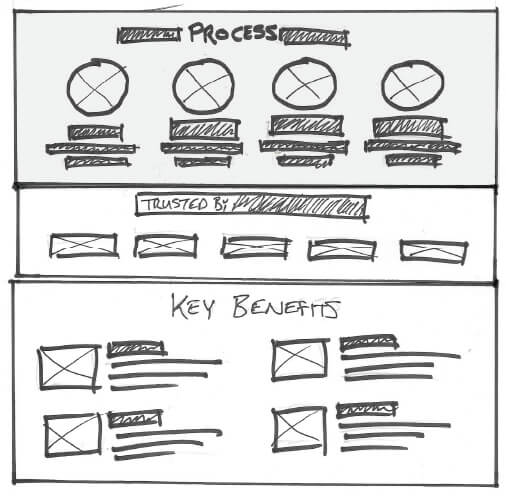 PROCESS
TRUSTED By
KEY BENEFITS